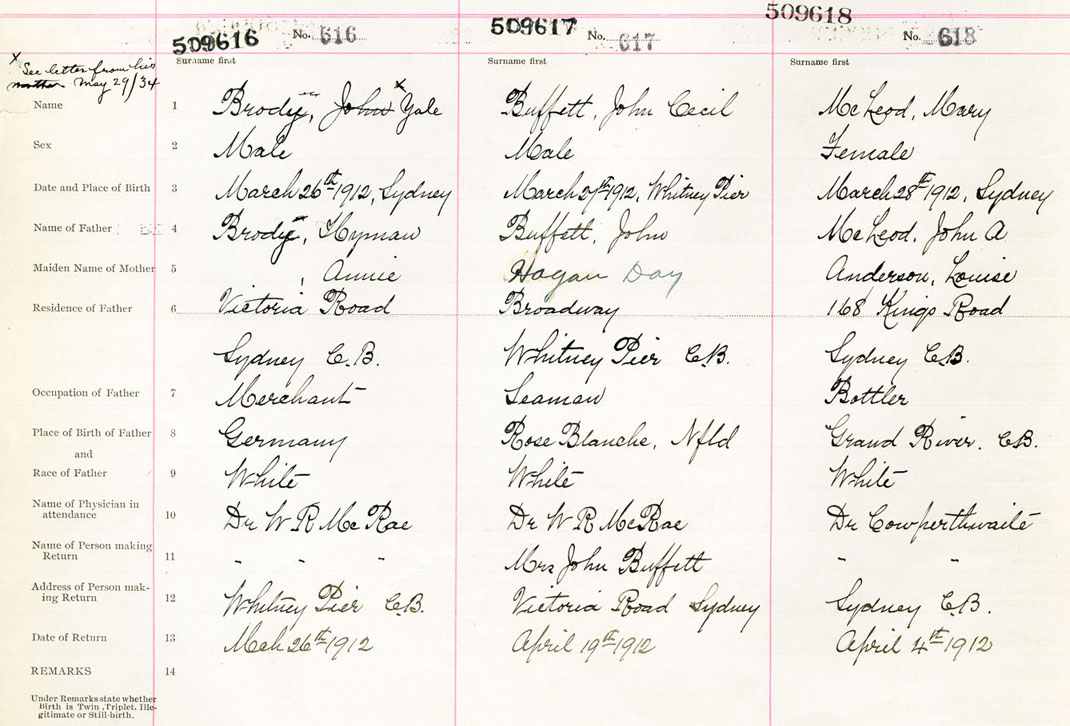 509616 No. 616 509617 No. 617 509618 No. 618
Surname first Surname first Surname first
x See letter from his
mother May 29/34
Name 1 Brody, John x Yale Buffett, John Cecil McLeod, Mary
Sex 2 Male Male Female
Date and Place of Birth 3 March 26th 1912, Sydney March 27th 1912, Whitney Pier March 28th 1912, Sydney
Name of Father 4 Brody, Hyman Buffett, John McLeod, John A
Maiden Name of Mother 5 , Annie Hagan Day Anderson, Louise
Residence of Father 6 Victoria Road Broadway 168 Kings Road
Sydney C.B. Whitney Pier C.B. Sydney C.B.
Occupation of Father 7 Merchant Seaman Bottler
Place of Birth of Father 8 Germany Rose Blanche, Nfld Grand River. C.B.
and
Race of Father 9 White White White
Name of Physician in
attendance 10 Dr W R McRae Dr W R McRae Dr Cowperthwaite
Name of Person making
Return 11 " " " Mrs John Buffett " "
Address of Person mak-
ing Return 12 Whitney Pier C.B. Victoria Road Sydney Sydney C.B.
Date of Return 13 Mch 26th 1912 April 19th 1912 April 4th 1912
REMARKS 14
Under Remarks state whether
Birth is Twin, Triplet, Ille-
gitimate or Still-birth.